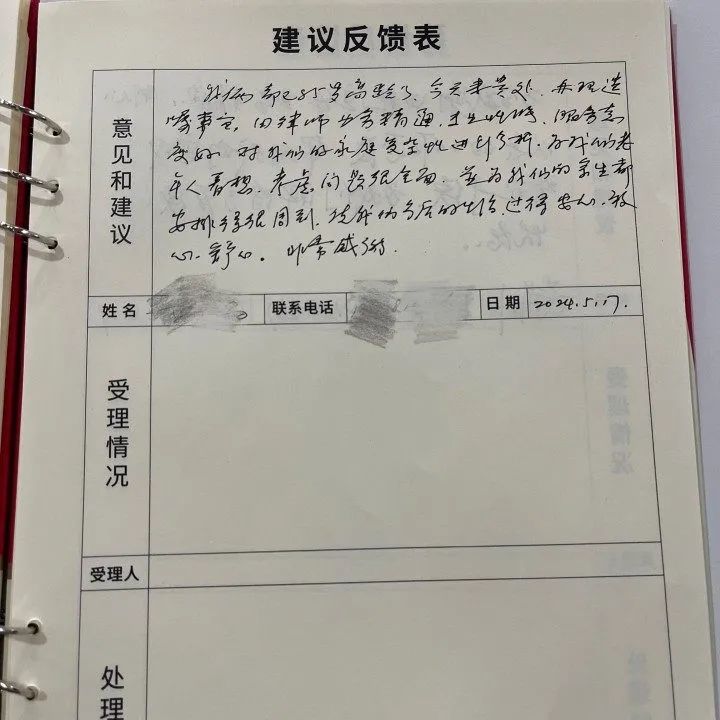 建议反馈表
意见和建议
我俩都已85岁高龄了,今天来贵处,办理遗
嘱事宜,田律师业务精通,服务态
度好,对我们的家庭复杂性进行分析,为我们老
年人着想,考虑问题很全面,并为我们的余生都
安排得很周到,使我们今后的生活过得安心、放
心、舒心。非常感谢.
姓名
联系电话
日期 2024.5.17.
受理情况
受理人
处理